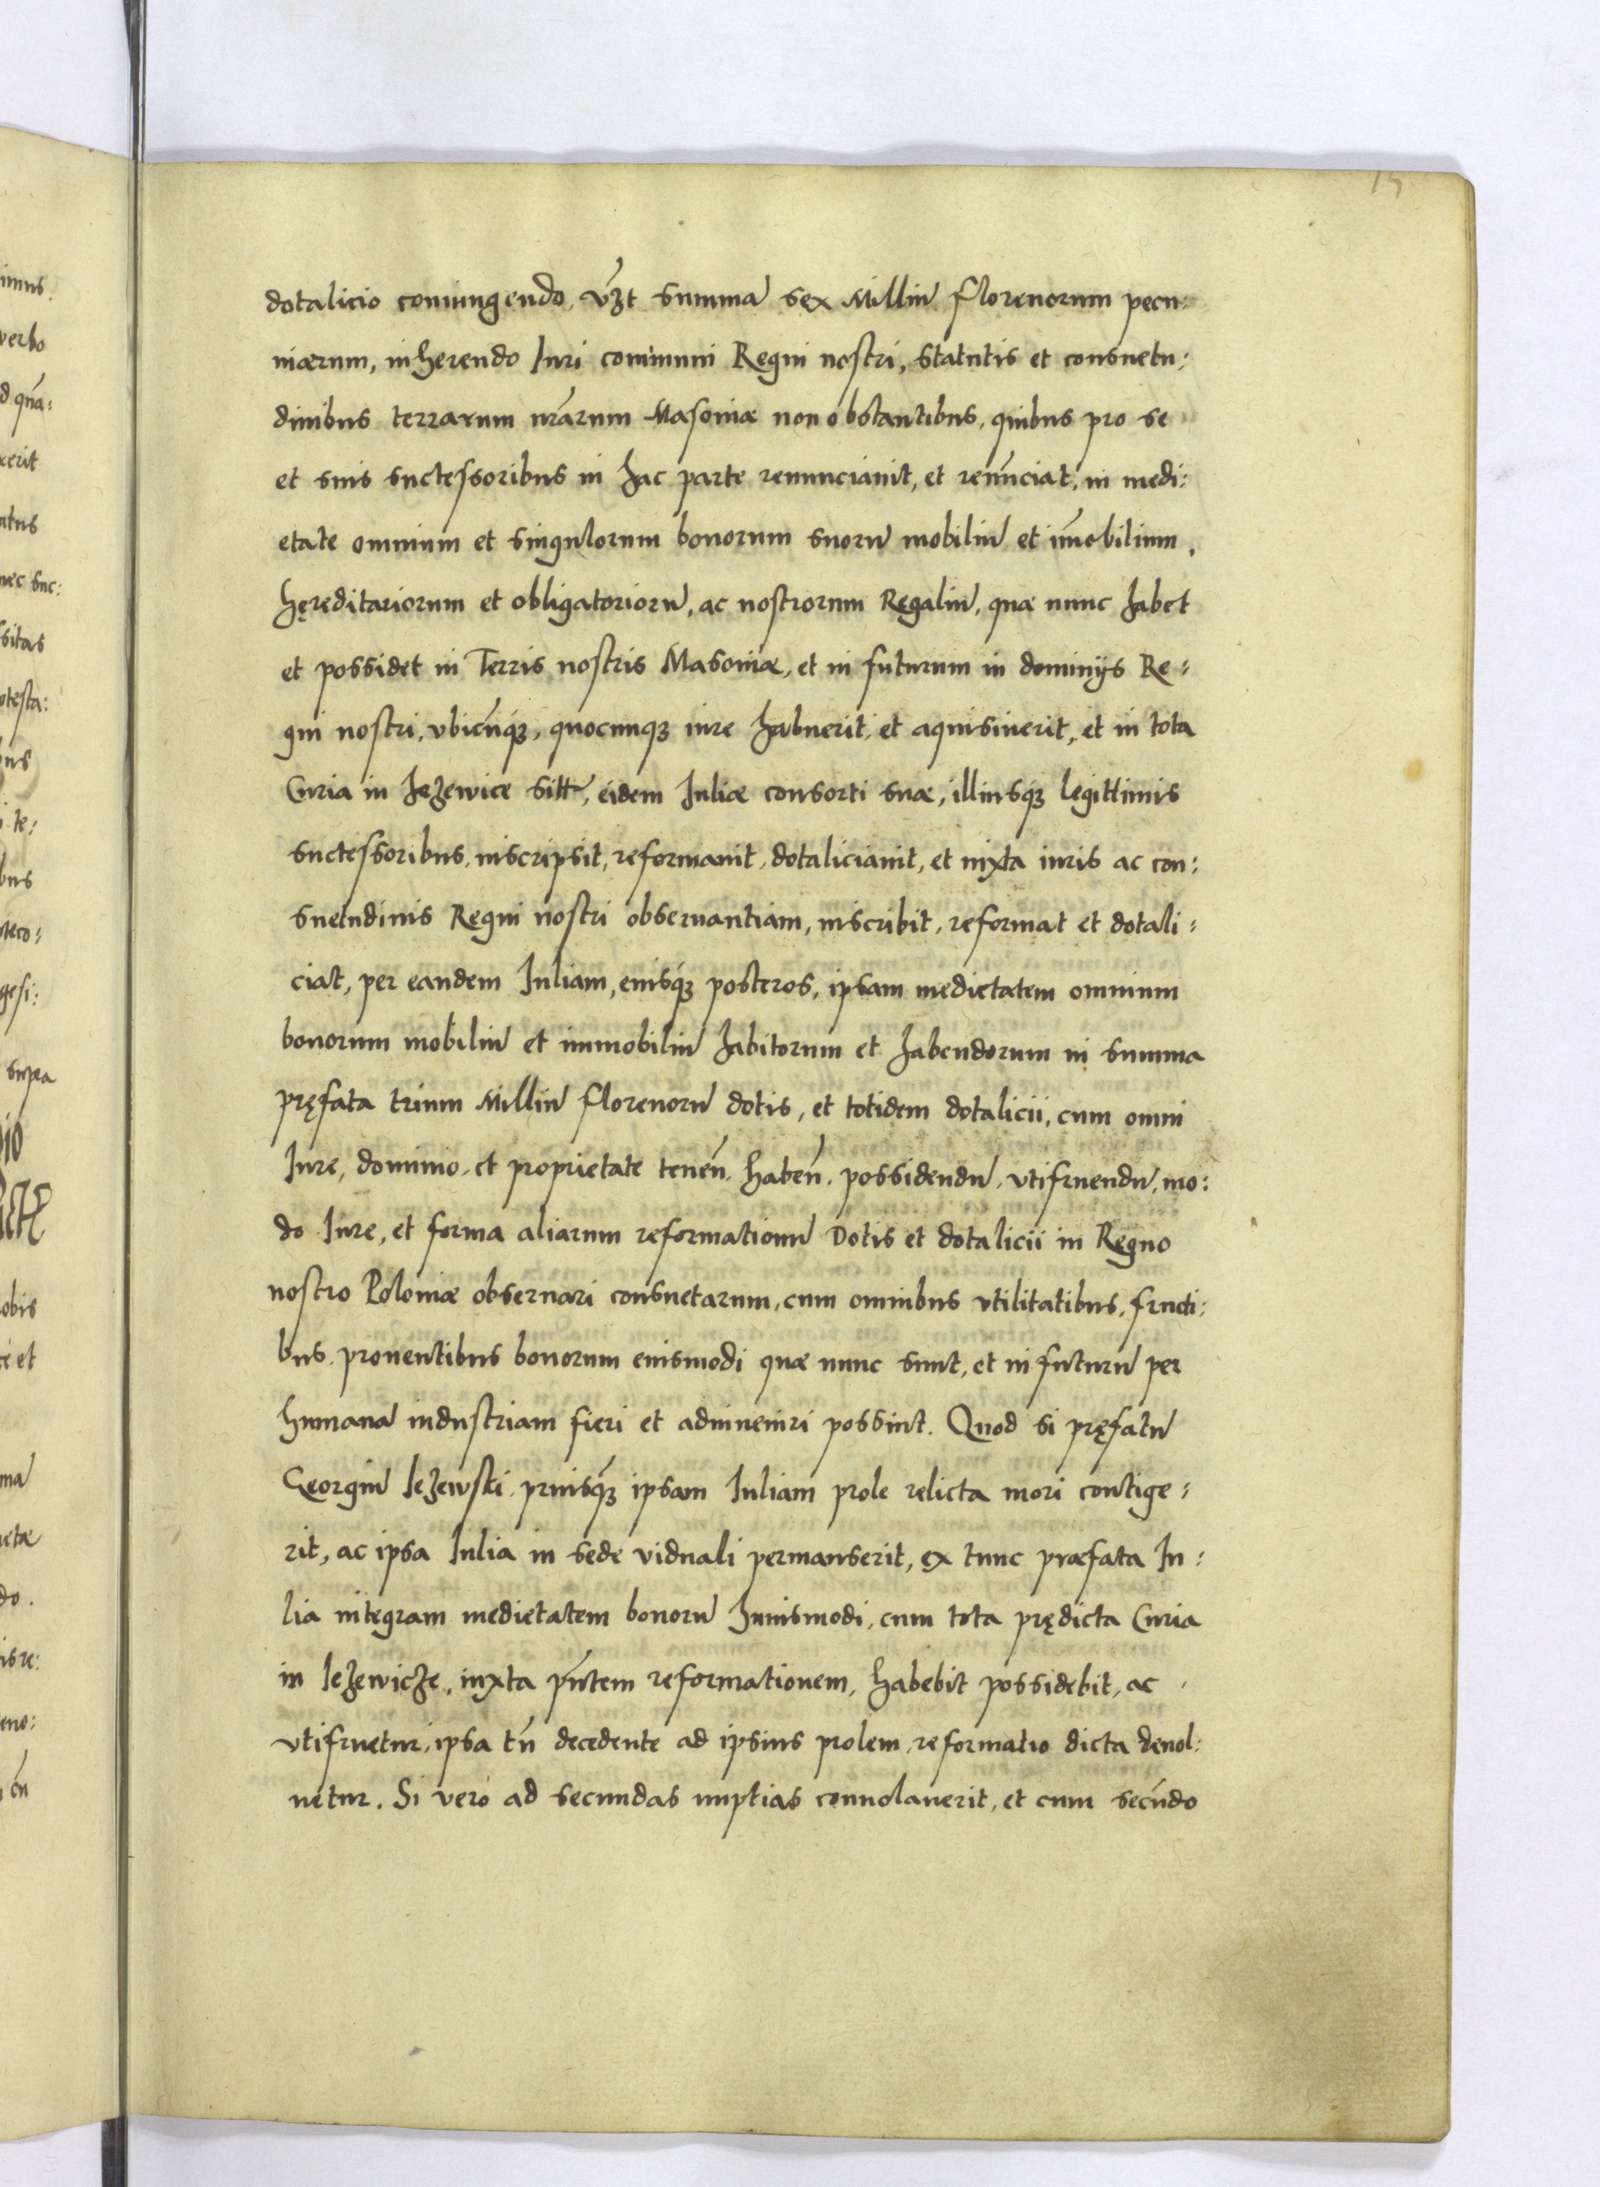 15
dotalicio coniungendo, vzt summa sex Milliũ Florenorum pecu:
niarum, inherendo Iuri communi Regni nostri, statutis et consuetu:
dinibus terrarum nrãrum Masoviæ non obstantibus, quibus pro se
et suis suctessoribus in hac parte renunciavit, et renũciat, in medi:
etate omnium et singulorum bonorum suorũ mobiliũ et im̃obilium,
hęreditariorum et obligatoriorũ, ac nostrorum Regaliũ, quæ nunc habet
et possidet in Terris nostris Masoviæ, et in futurum in dominijs Re:
gni nostri, vbicũqꝫ, quocunqꝫ iure habuerit, et aquisiverit, et in tota
Curia in Jeżewice sitt, eidem Juliæ consorti suæ, illiusqꝫ legittimis
suctessoribus, inscripsit, reformavit, dotaliciavit, et iuxta iuris ac con:
suetudinis Regni nostri observantiam, inscribit, reformat et dotali:
ciat, per eandem Iuliam, eiusqꝫ posteros, ipsam medietatem omnium
bonorum mobiliũ et immobiliũ habitorum et habendorum in summa
pręfata trium Milliũ Florenorũ dotis, et totidem dotalicii, cum omni
Iure, dominio et proprietate tenen̄. haben̄. possidendũ, vtifruendũ, mo:
do Iure, et forma aliarum reformationũ Dotis et dotalicii in Regno
nostro Poloniæ observari consuetarum, cum omnibus vtilitatibus, fructi:
bus, proventibus bonorum eiusmodi quæ nunc sunt, et in futurũ per
humanã industriam fieri et adinveniri possint. Quod si pręfatũ
Georgiũ Ieżewski, priusqꝫ ipsam Iuliam prole relicta mori contige:
rit, ac ipsa Iulia in sede viduali permanserit, ex tunc præfata Iu:
lia integram medietatem bonorũ huiusmodi, cum tota prędicta Curia
in Ieżewicze, iuxta pñtem reformationem, habebit possidebit, ac
vtifruetur, ipsa tñ decedente ad ipsius prolem, reformatio dicta devol:
vetur. Si vero ad secundas nuptias convolaverit, et cum secũdo